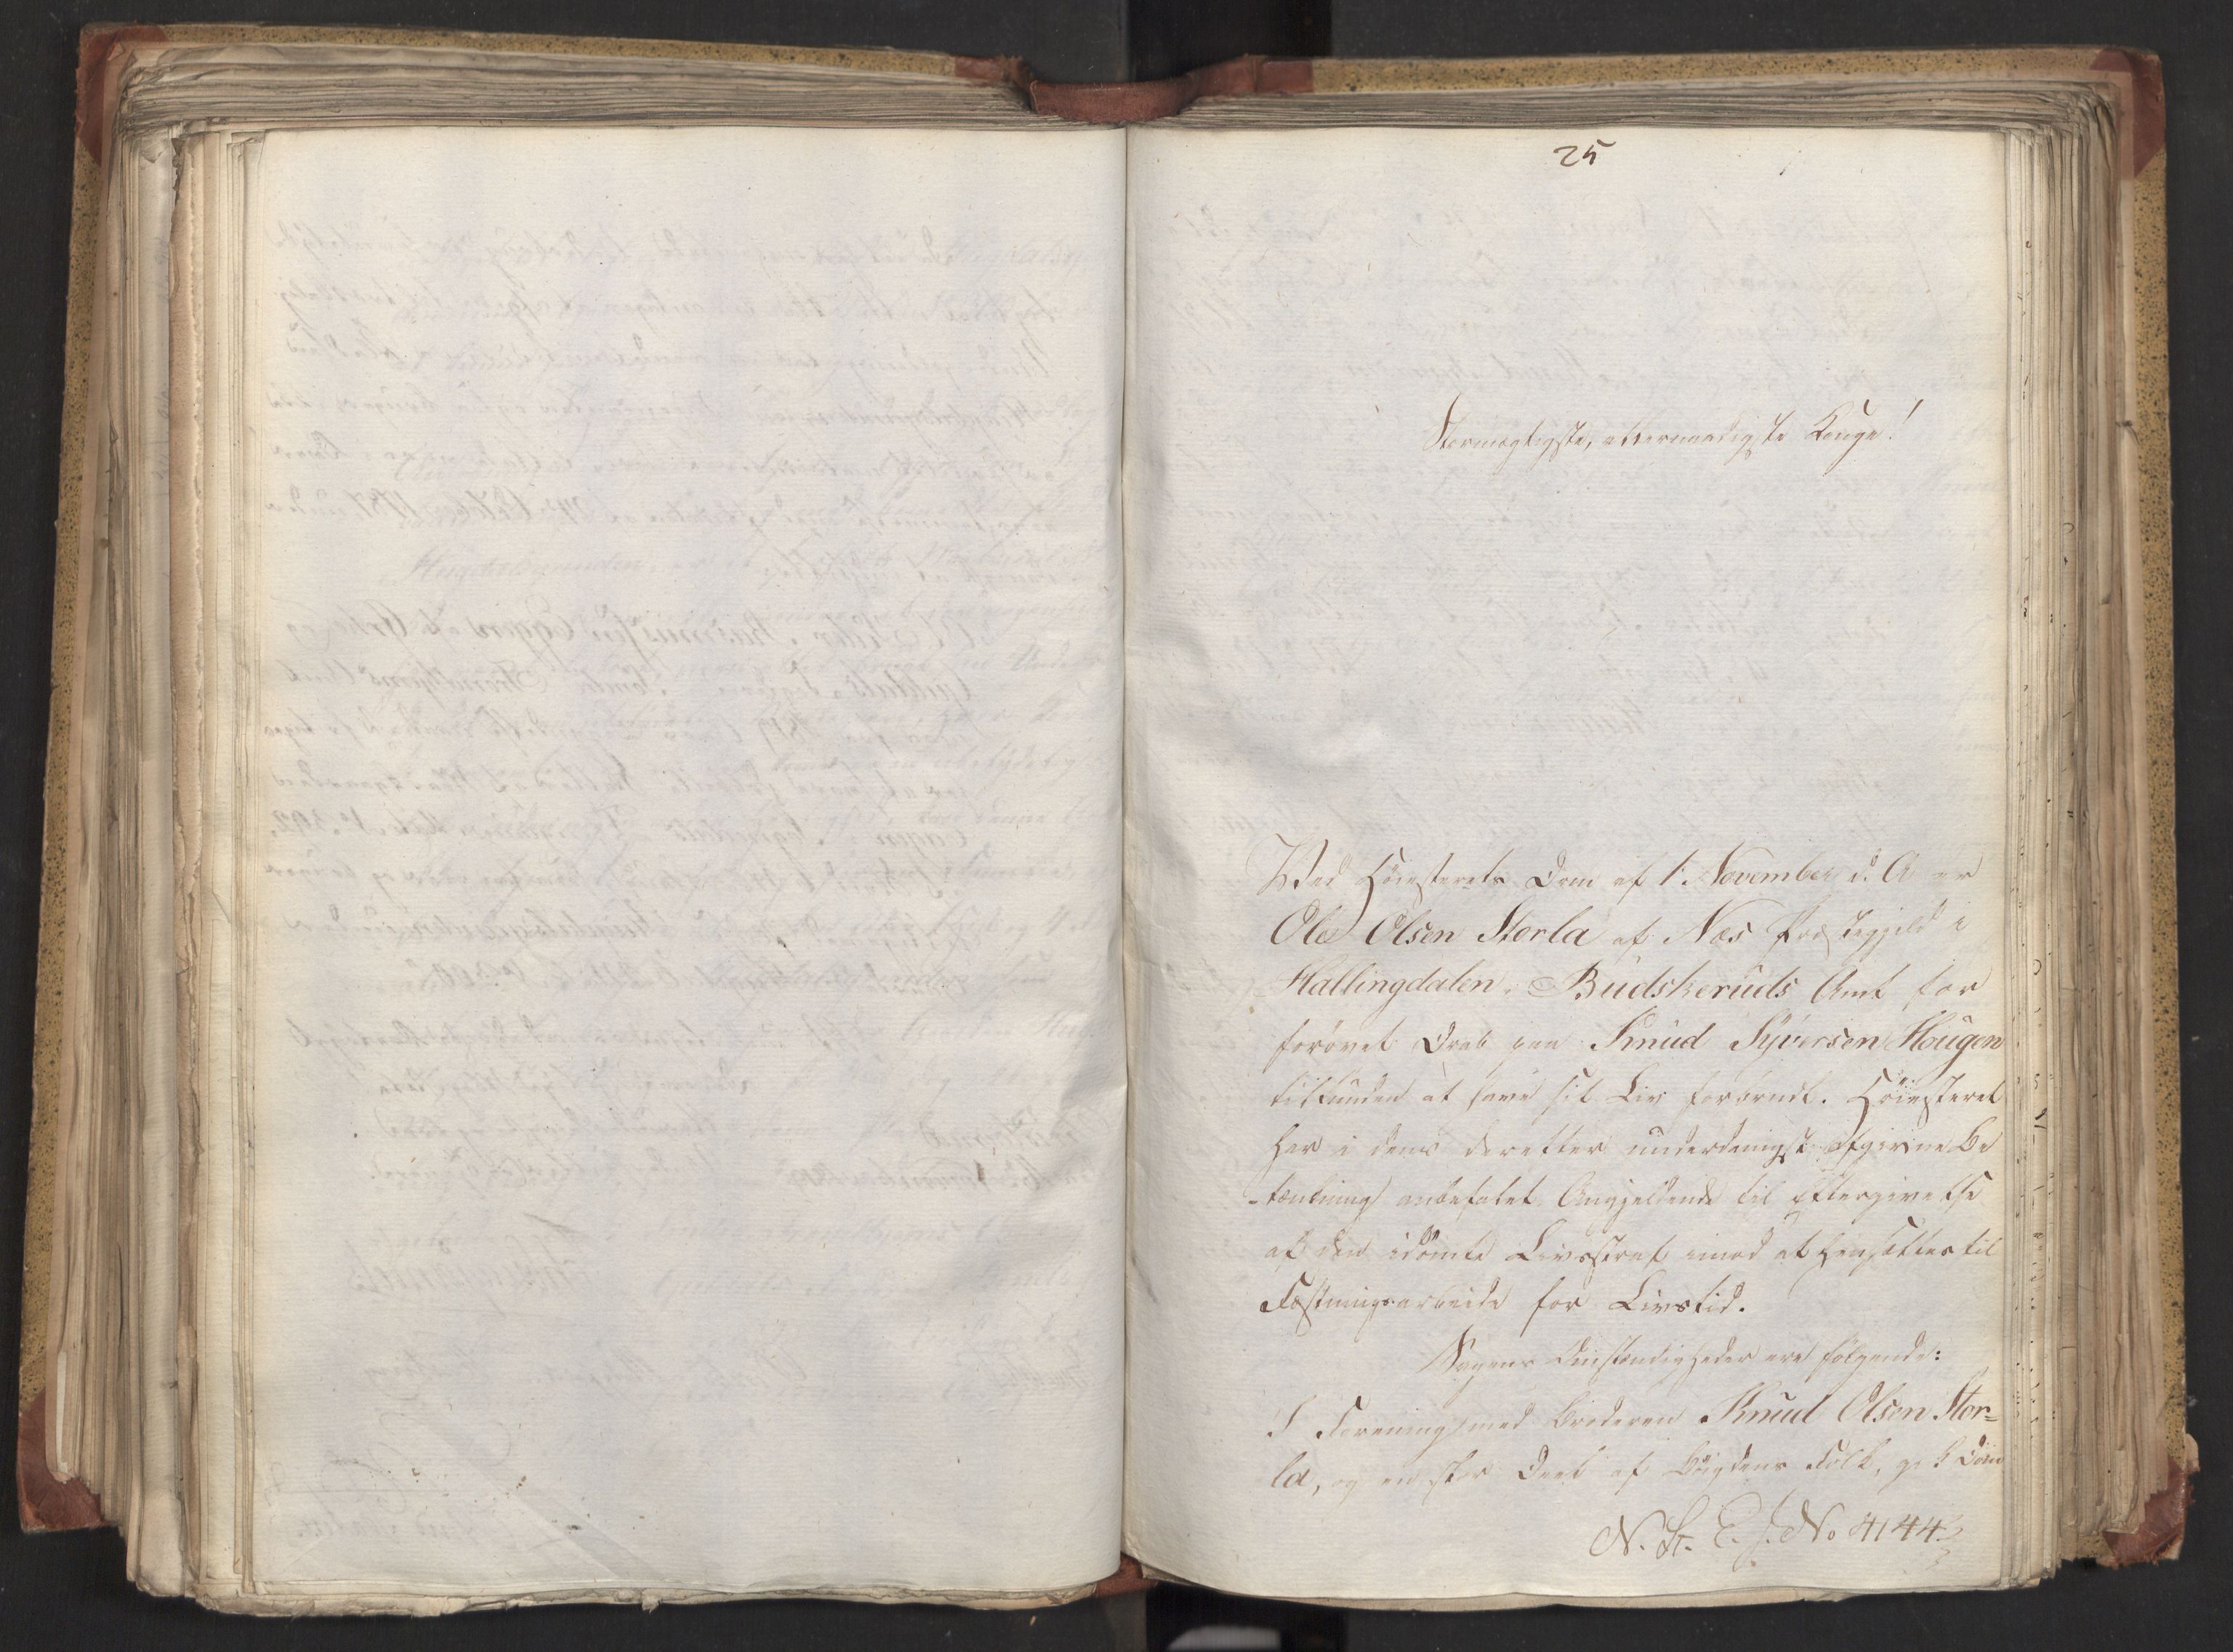 25
Stormægtigste, allernaadigste Konge!
Ved Höiesterets Dom af 1. November d. A. er
Ole Olsen Sterla af Næs Præstegjeld i
Hallingdalen, Budskeruds Amt for
forövet Drab paa Knud Syversen Hougen
tilfunden at have sit Liv forbrudt. Höiesteret
har i dens derefter underdanigst afgivne Be
-tænkning anbefalet Angjeldende til Eftergivelse
af den idömte Livsstraf imod at hensættes til
Fæstningsarbeide for Livstid.
Sagens Omstændigheder ere fölgende:
I Forening med Broderen Knud Olsen Ster=
la, og en stor Deel af Bygdens Folk, gik Döm
N. St. E. J. No 4144.